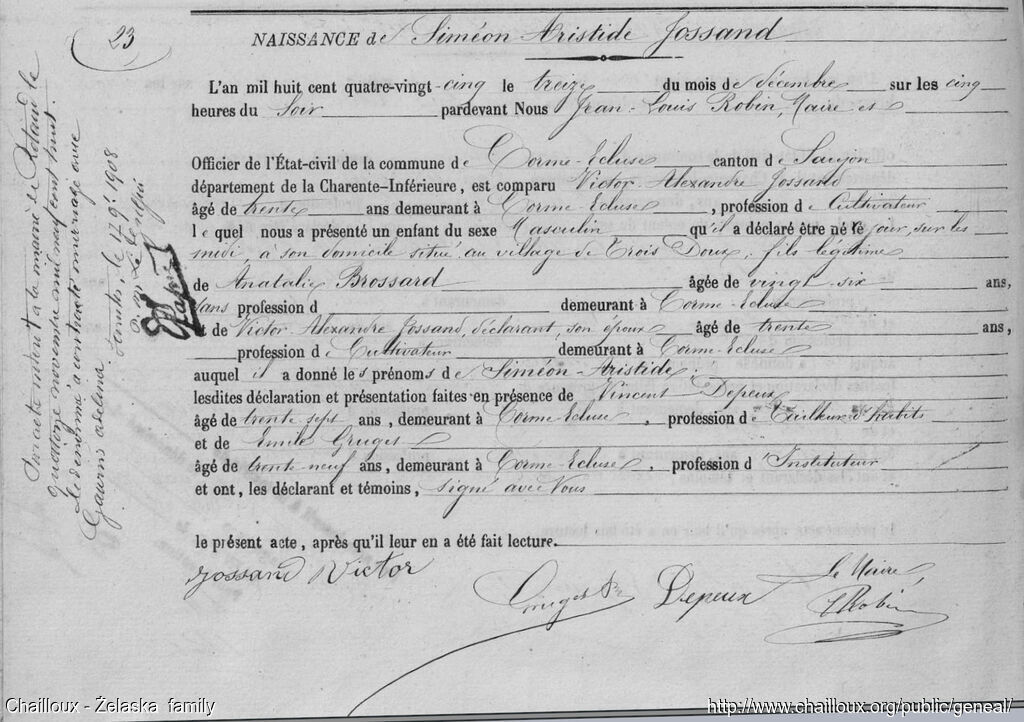 23
NAISSANCE de Siméon Aristide Jossand
L'an mil huit cent quatre-vingt-cinq le treize du mois de décembre sur les cinq
heures du soir pardevant Nous Jean-Louis Robin, Maire et
Officier de l'État-civil de la commune de Corme-Ecluse canton de Saujon
département de la Charente-Inférieure, est comparu Victor-Alexandre Jossand
âgé de trente ans demeurant à Corme-Ecluse, profession de Cultivateur
lequel nous a présenté un enfant du sexe Masculin qu'il a déclaré être né le jour, sur les
midi, à son domicile situé au village de Trois Doux, fils légitime
de Anatalie Brossard âgée de vingt six ans,
sans profession d demeurant à Corme-Ecluse
et de Victor Alexandre Jossand, déclarant, son époux âgé de trente ans,
profession de Cultivateur demeurant à Corme-Ecluse
auquel il a donné les prénoms de Siméon-Aristide.
lesdites déclaration et présentation faites en présence de Vincent Depeux
âgé de trente sept ans, demeurant à Corme-Ecluse, profession de Tailleur d'habits
et de Emile Gruges
âgé de trente-neuf ans, demeurant à Corme-Ecluse, profession d'Instituteur
et ont, les déclarant et témoins, signé avec Nous
le présent acte, après qu'il leur en a été fait lecture.
Jossand Victor
Gruges
Depeux
Le Maire,
Robin
quatorze novembre mil neuf cent huit
le 17 9.bre 1908
Chailloux - Żelaska family
http://www.chailloux.org/public/geneal/